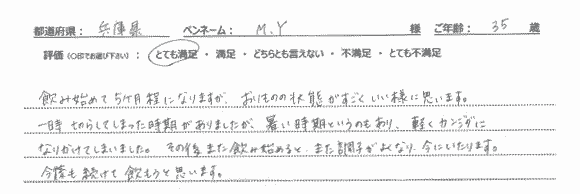 都道府県： 兵庫県 ペンネーム： M.Y 様 ご年齢： 35 歳
評価（○印でお選び下さい）： とても満足 ・ 満足 ・ どちらとも言えない ・ 不満足 ・ とても不満足
飲み始めて5ヶ月程になりますが、おりものの状態がすごくいい様に思います。
一時切らしてしまった時期がありましたが、暑い時期というのもあり、軽くカンジダに
なりかけてしまいました。その後また飲み始めると、また調子がよくなり、今にいたります。
今後も続けて飲もうと思います。